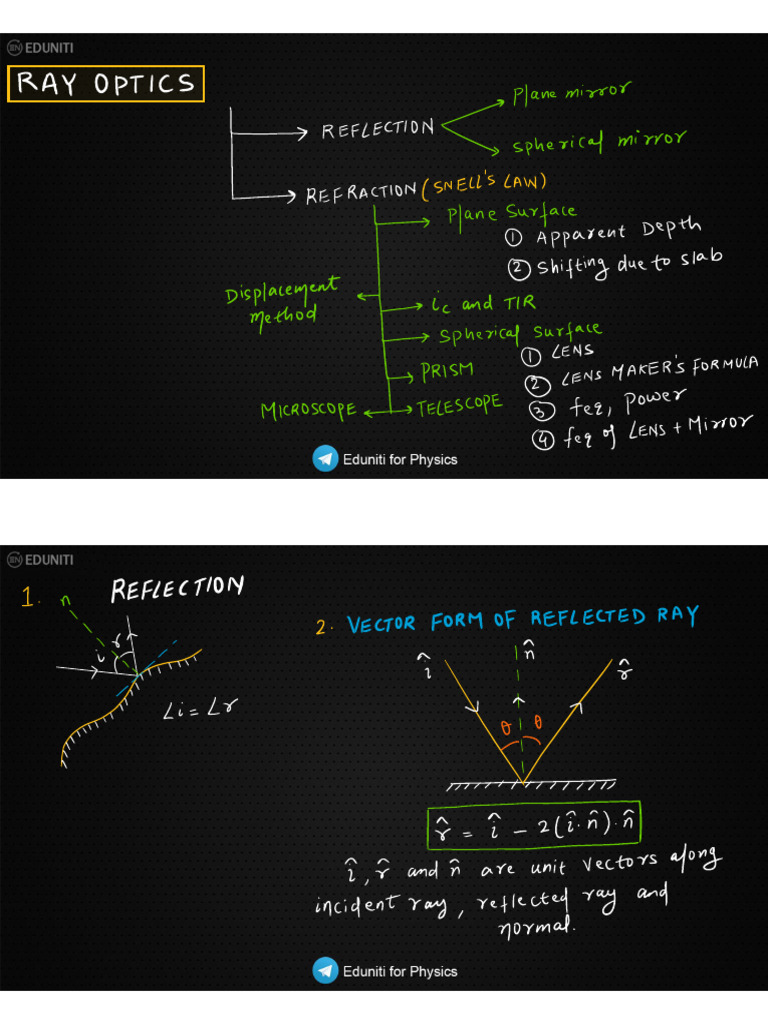 EDUNITI
RAY OPTICS
REFLECTION
Plane mirror
Spherical mirror
REFRACTION (SNELL'S LAW)
Plane Surface
① Apparent Depth
② Shifting due to slab
Displacement
method
ic and TIR
Spherical Surface
① LENS
② LENS MAKER'S FORMULA
③ feq, Power
④ feq of LENS + Mirror
PRISM
MICROSCOPE
TELESCOPE
Eduniti for Physics
EDUNITI
1. REFLECTION
n
i r
∠i = ∠r
2. VECTOR FORM OF REFLECTED RAY
î n̂ r̂
θ θ
r̂ = î - 2(î·n̂)·n̂
î, r̂ and n̂ are unit vectors along
incident ray, reflected ray and
normal.
Eduniti for Physics